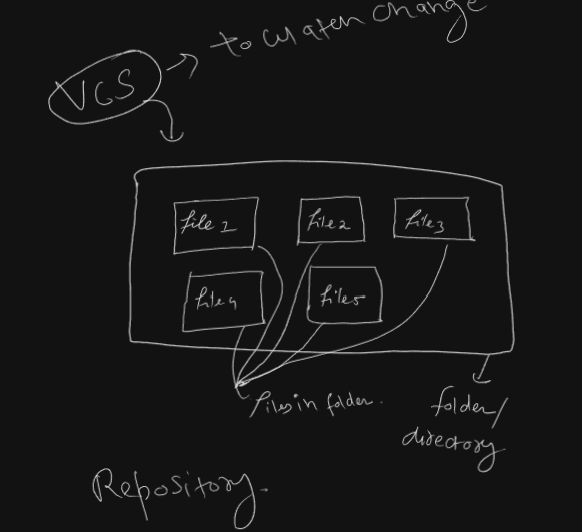 to watch change
VCS
file 1
file 2
file 3
file 4
file 5
files in folder.
folder/
directory
Repository.